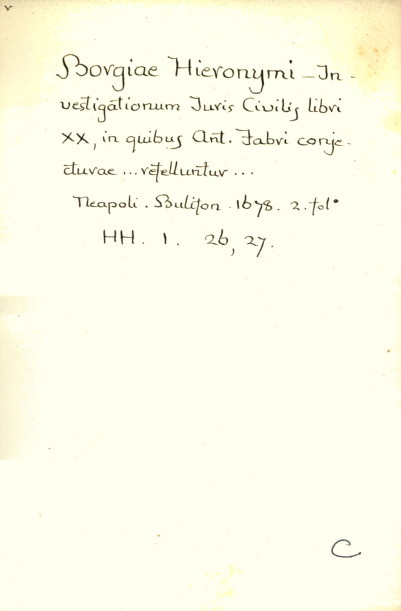 Borgiae Hieronymi - In-
vestigationum Juris Civilis libri
XX, in quibus Ant. Fabri conje-
cturae ... refelluntur ...
Neapoli. Bulifon. 1678. 2. fol°
HH. 1. 26, 27.
C